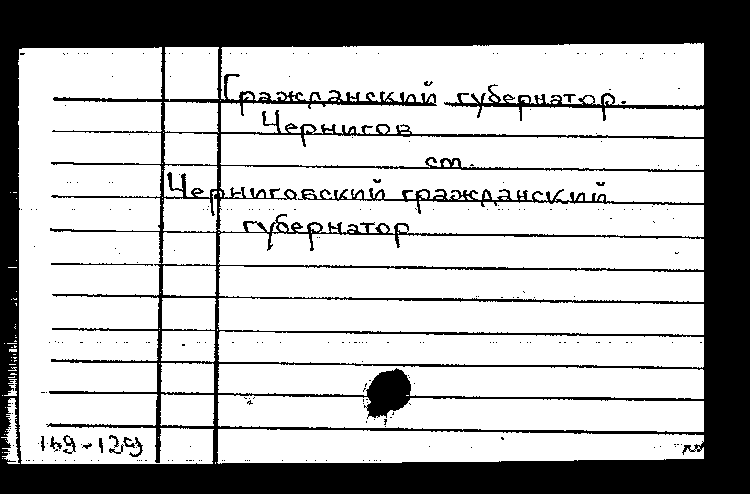 Гражданский губернатор.
Чернигов
ст.
Черниговский гражданский
губернатор
169-129